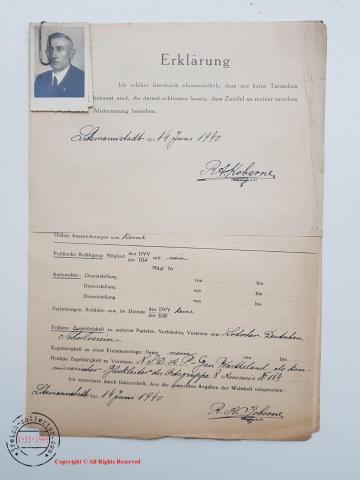 Erklärung
Ich erkläre hierdurch ehrenwörtlich, dass mir keine Tatsachen
bekannt sind, die darauf schliessen lassen, dass Zweifel an meiner arischen
Abstammung bestehen.
Litzmannstadt den 14 Juni 1940
Orden, Auszeichnungen usw. keine
Politische Betätigung: Mitglied des DVV
der JDP seit nein
Mitgl. Nr
Amtswalter: Dienststellung von bis
Dienststellung von bis
Dienststellung von bis
Verletzungen, Schäden usw. im Dienste des DVV keine
der JDP
Frühere Zugehörigkeit zu anderen Parteien, Verbänden, Vereinen usw. Lodzcher Deutschen
Schulverein
Zugehörigkeit zu einer Freimaurerloge: Name nein von bis
Heutige Zugehörigkeit zu Vereinen: N.S.D.A.P. Gau Wartheland als kom
missarischer Blockleiter der Ortsgruppe 8 Ausweis No 184
Ich versichere durch Unterschrift, dass die gemachten Angaben der Wahrheit entsprechen:
Litzmannstadt den 14 Juni 1940
1933-1945
Copyright © All Rights Reserved